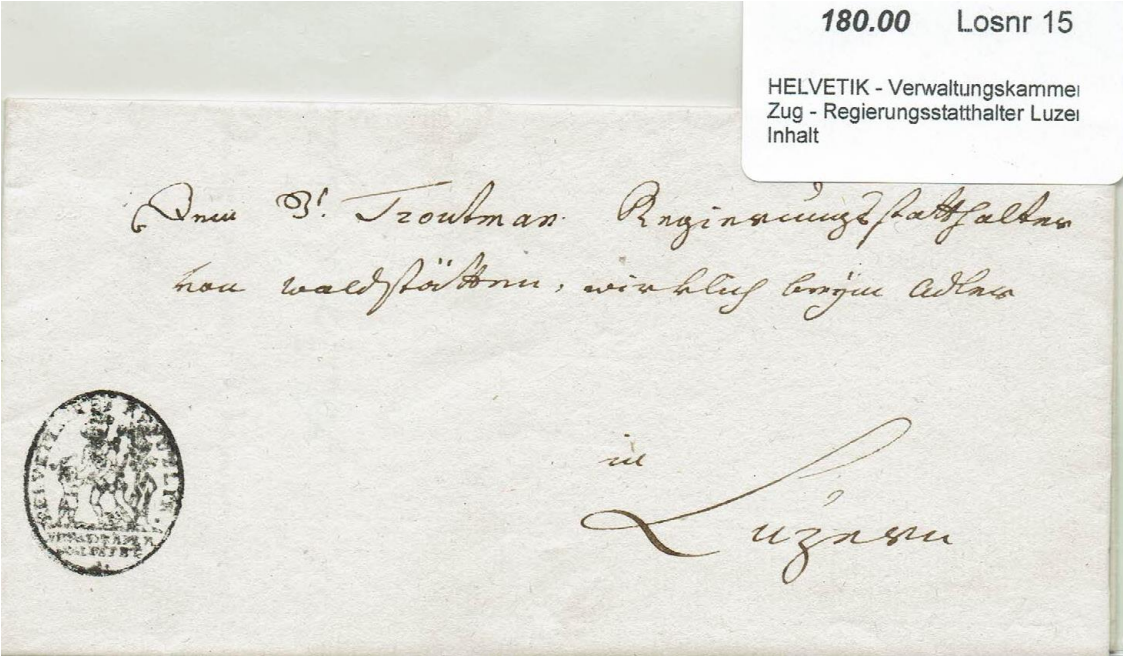 180.00 Losnr 15
HELVETIK - Verwaltungskammer
Zug - Regierungsstatthalter Luzer
Inhalt
Dem B'. Troutman Regierungsstatthalter
von waldstätten, wirklich beÿm Adler
in
Luzern
HELVETISCHE REPUBLIK.